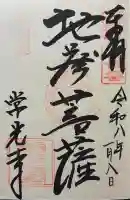 奉拝
地蔵菩薩
令和八年一月八日
学光寺